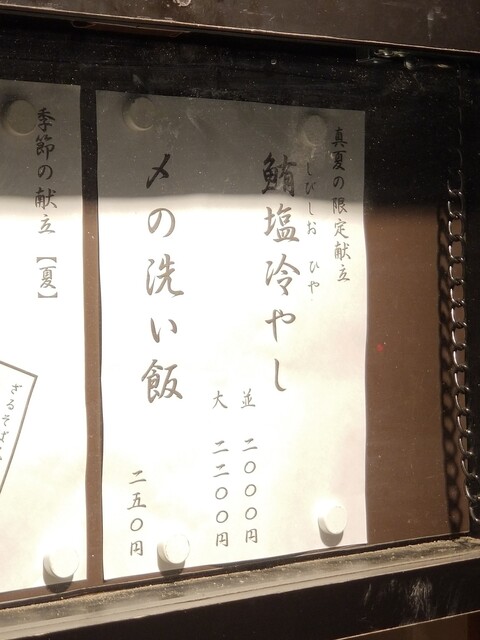 真夏の限定献立
しびしお ひや
鮪塩冷やし
並 二〇〇〇円
大 二二〇〇円
〆の洗い飯
二五〇円
季節の献立【夏】
ざるそば